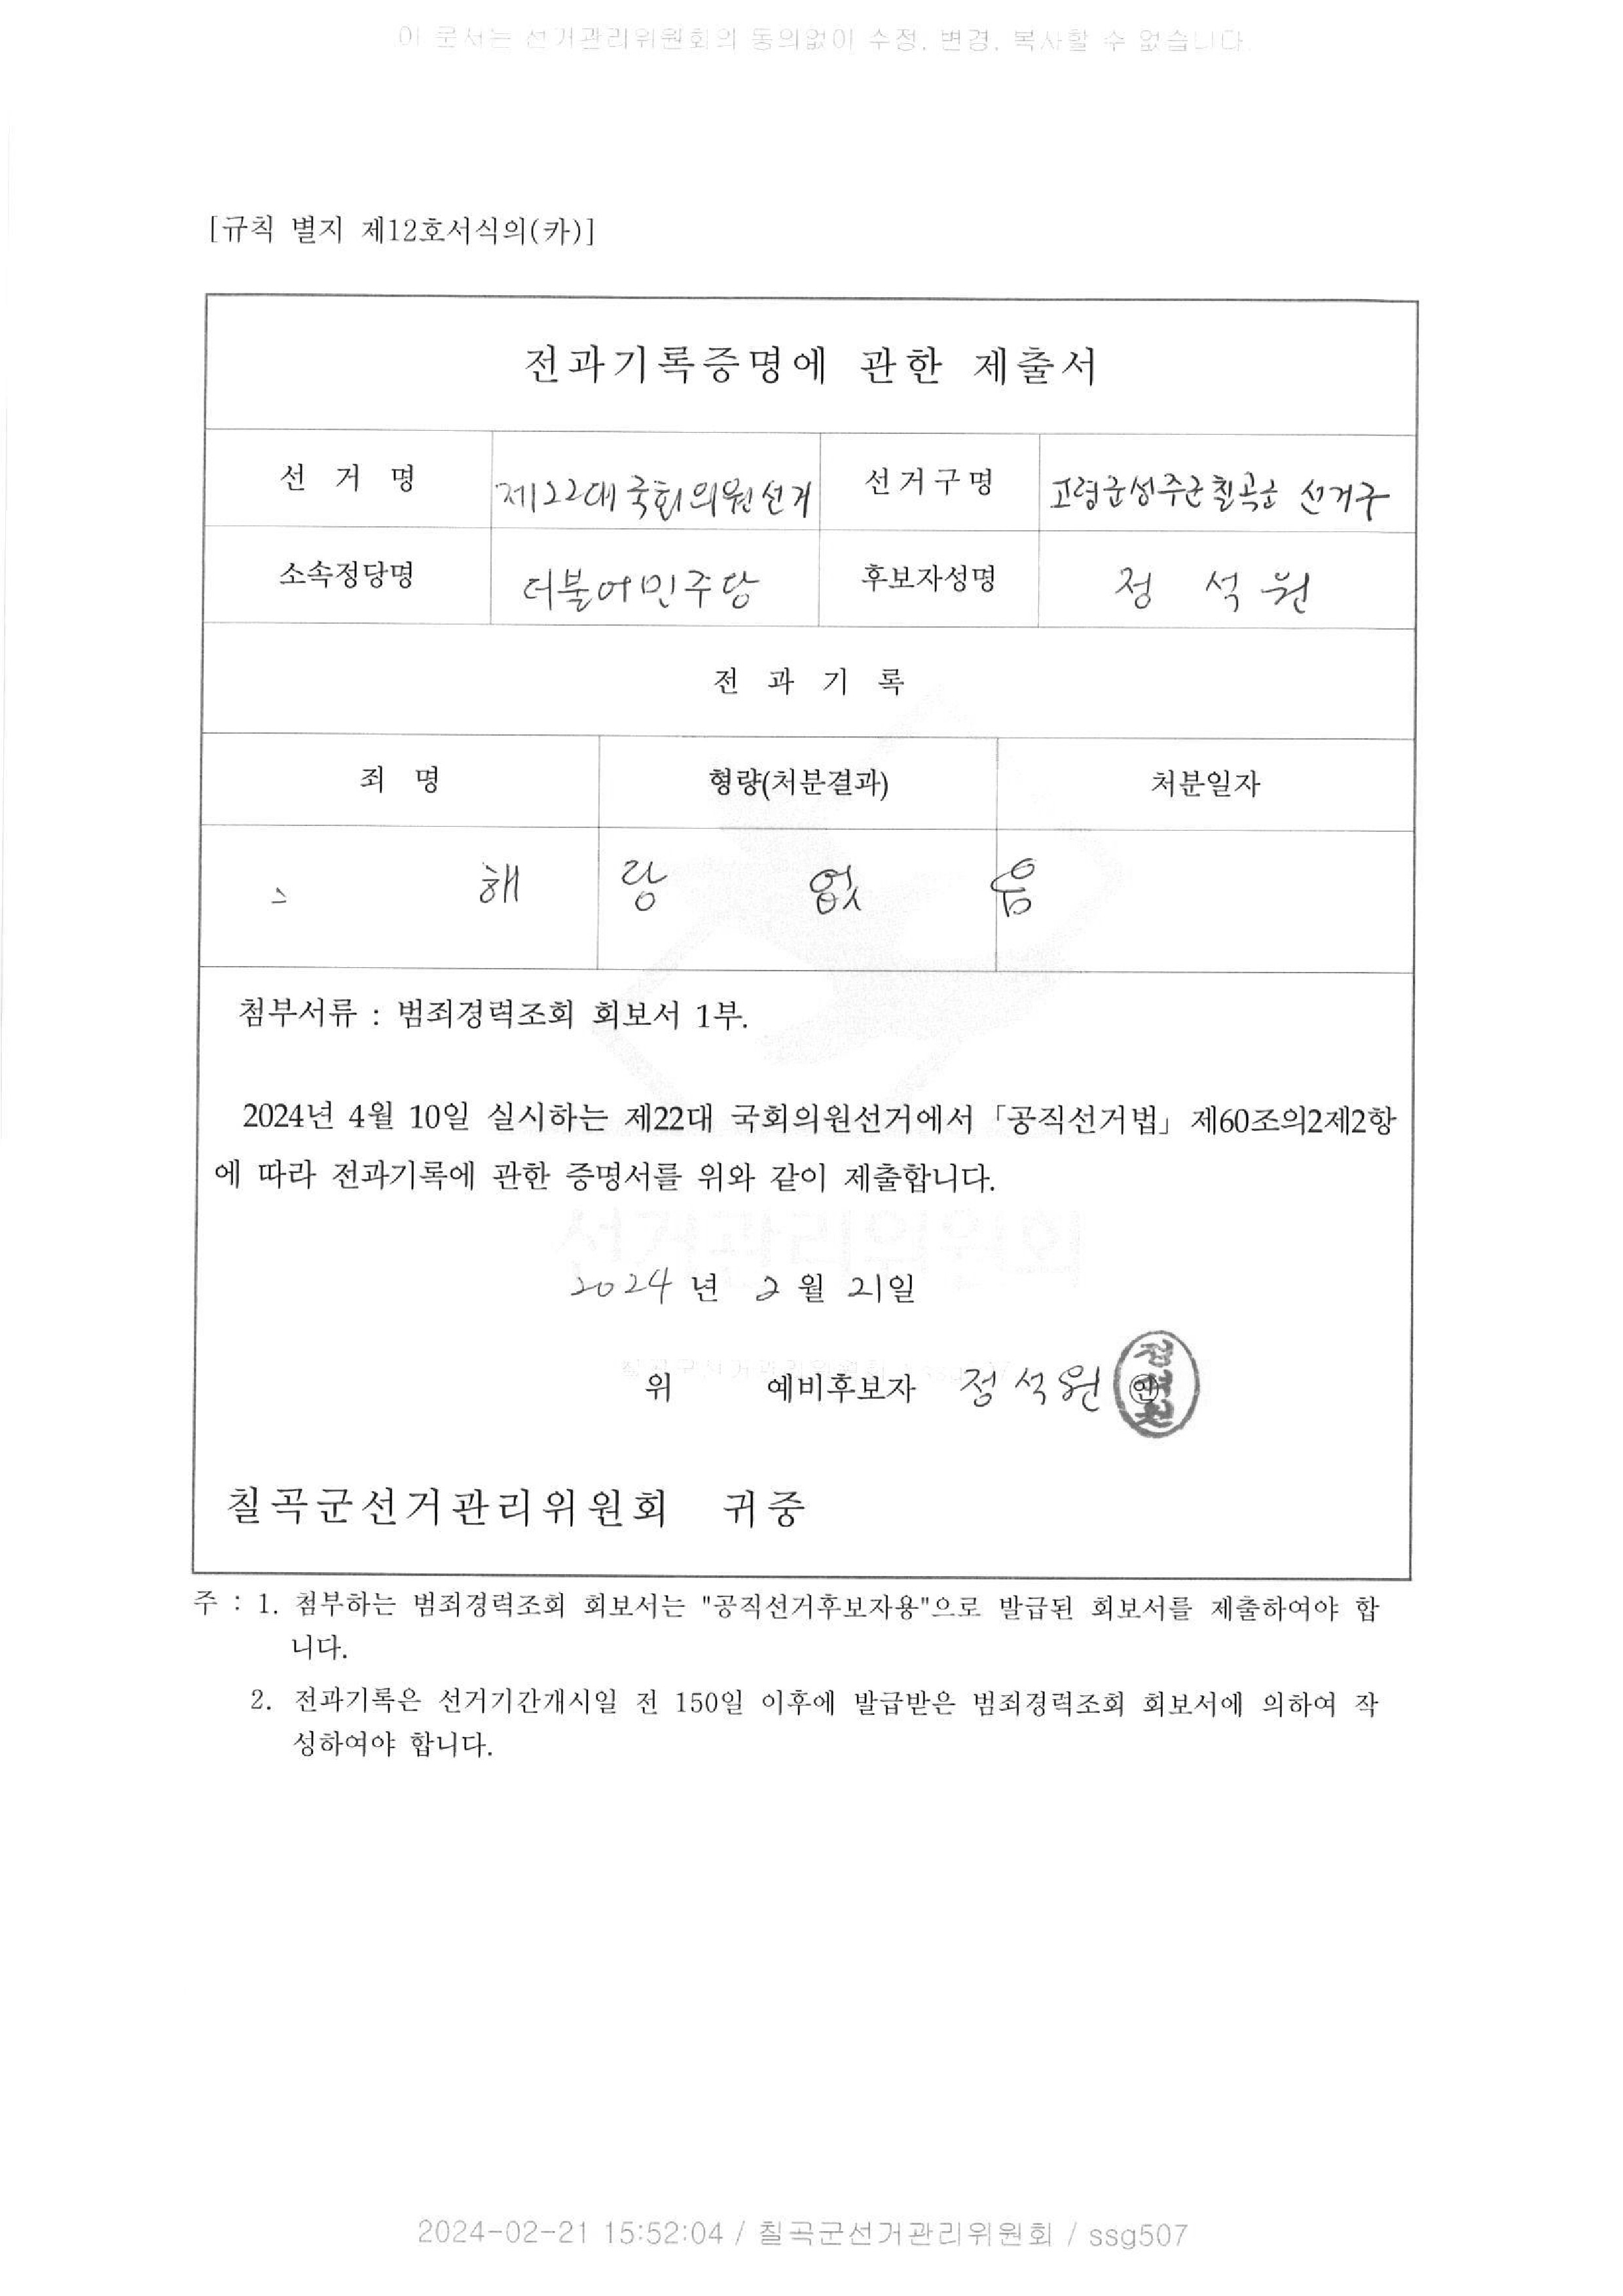 이 문서는 선거관리위원회의 동의없이 수정, 변경, 복사할 수 없습니다
[규칙 별지 제12호서식의(카)]
전과기록증명에 관한 제출서
선 거 명 제22대 국회의원선거 선거구명 고령군성주군칠곡군 선거구
소속정당명 더불어민주당 후보자성명 정 석 원
전 과 기 록
죄 명 형량(처분결과) 처분일자
해 당 없 음
첨부서류 : 범죄경력조회 회보서 1부.
2024년 4월 10일 실시하는 제22대 국회의원선거에서 「공직선거법」 제60조의2제2항
에 따라 전과기록에 관한 증명서를 위와 같이 제출합니다.
선거관리위원회
2024 년 2 월 21일
위 예비후보자 정석원 ㊞
칠곡군선거관리위원회 귀중
주 : 1. 첨부하는 범죄경력조회 회보서는 "공직선거후보자용"으로 발급된 회보서를 제출하여야 합
니다.
2. 전과기록은 선거기간개시일 전 150일 이후에 발급받은 범죄경력조회 회보서에 의하여 작
성하여야 합니다.
2024-02-21 15:52:04 / 칠곡군선거관리위원회 / ssg507